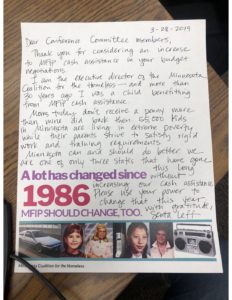 3-28-2019
Dear Conference Committee members,
Thank you for considering an increase
to MFIP cash assistance in your budget
negotiations.
I am the executive director of the Minnesota
Coalition for the Homeless - and more than
30 years ago I was a child benefiting
from MFIP cash assistance.
Moms today don't receive a penny more
than mine did back then. 65,000 kids
in Minnesota are living in extreme poverty
while their parents strive to satisfy child
work and training requirements.
Minnesota can and should do better. We
are one of only three states that have gone
this long
without
increasing our cash assistance.
Please use your power to
change that this year.
with gratitude,
Senta Leff
A lot has changed since
1986
MFIP SHOULD CHANGE, TOO.
Minnesota Coalition for the Homeless